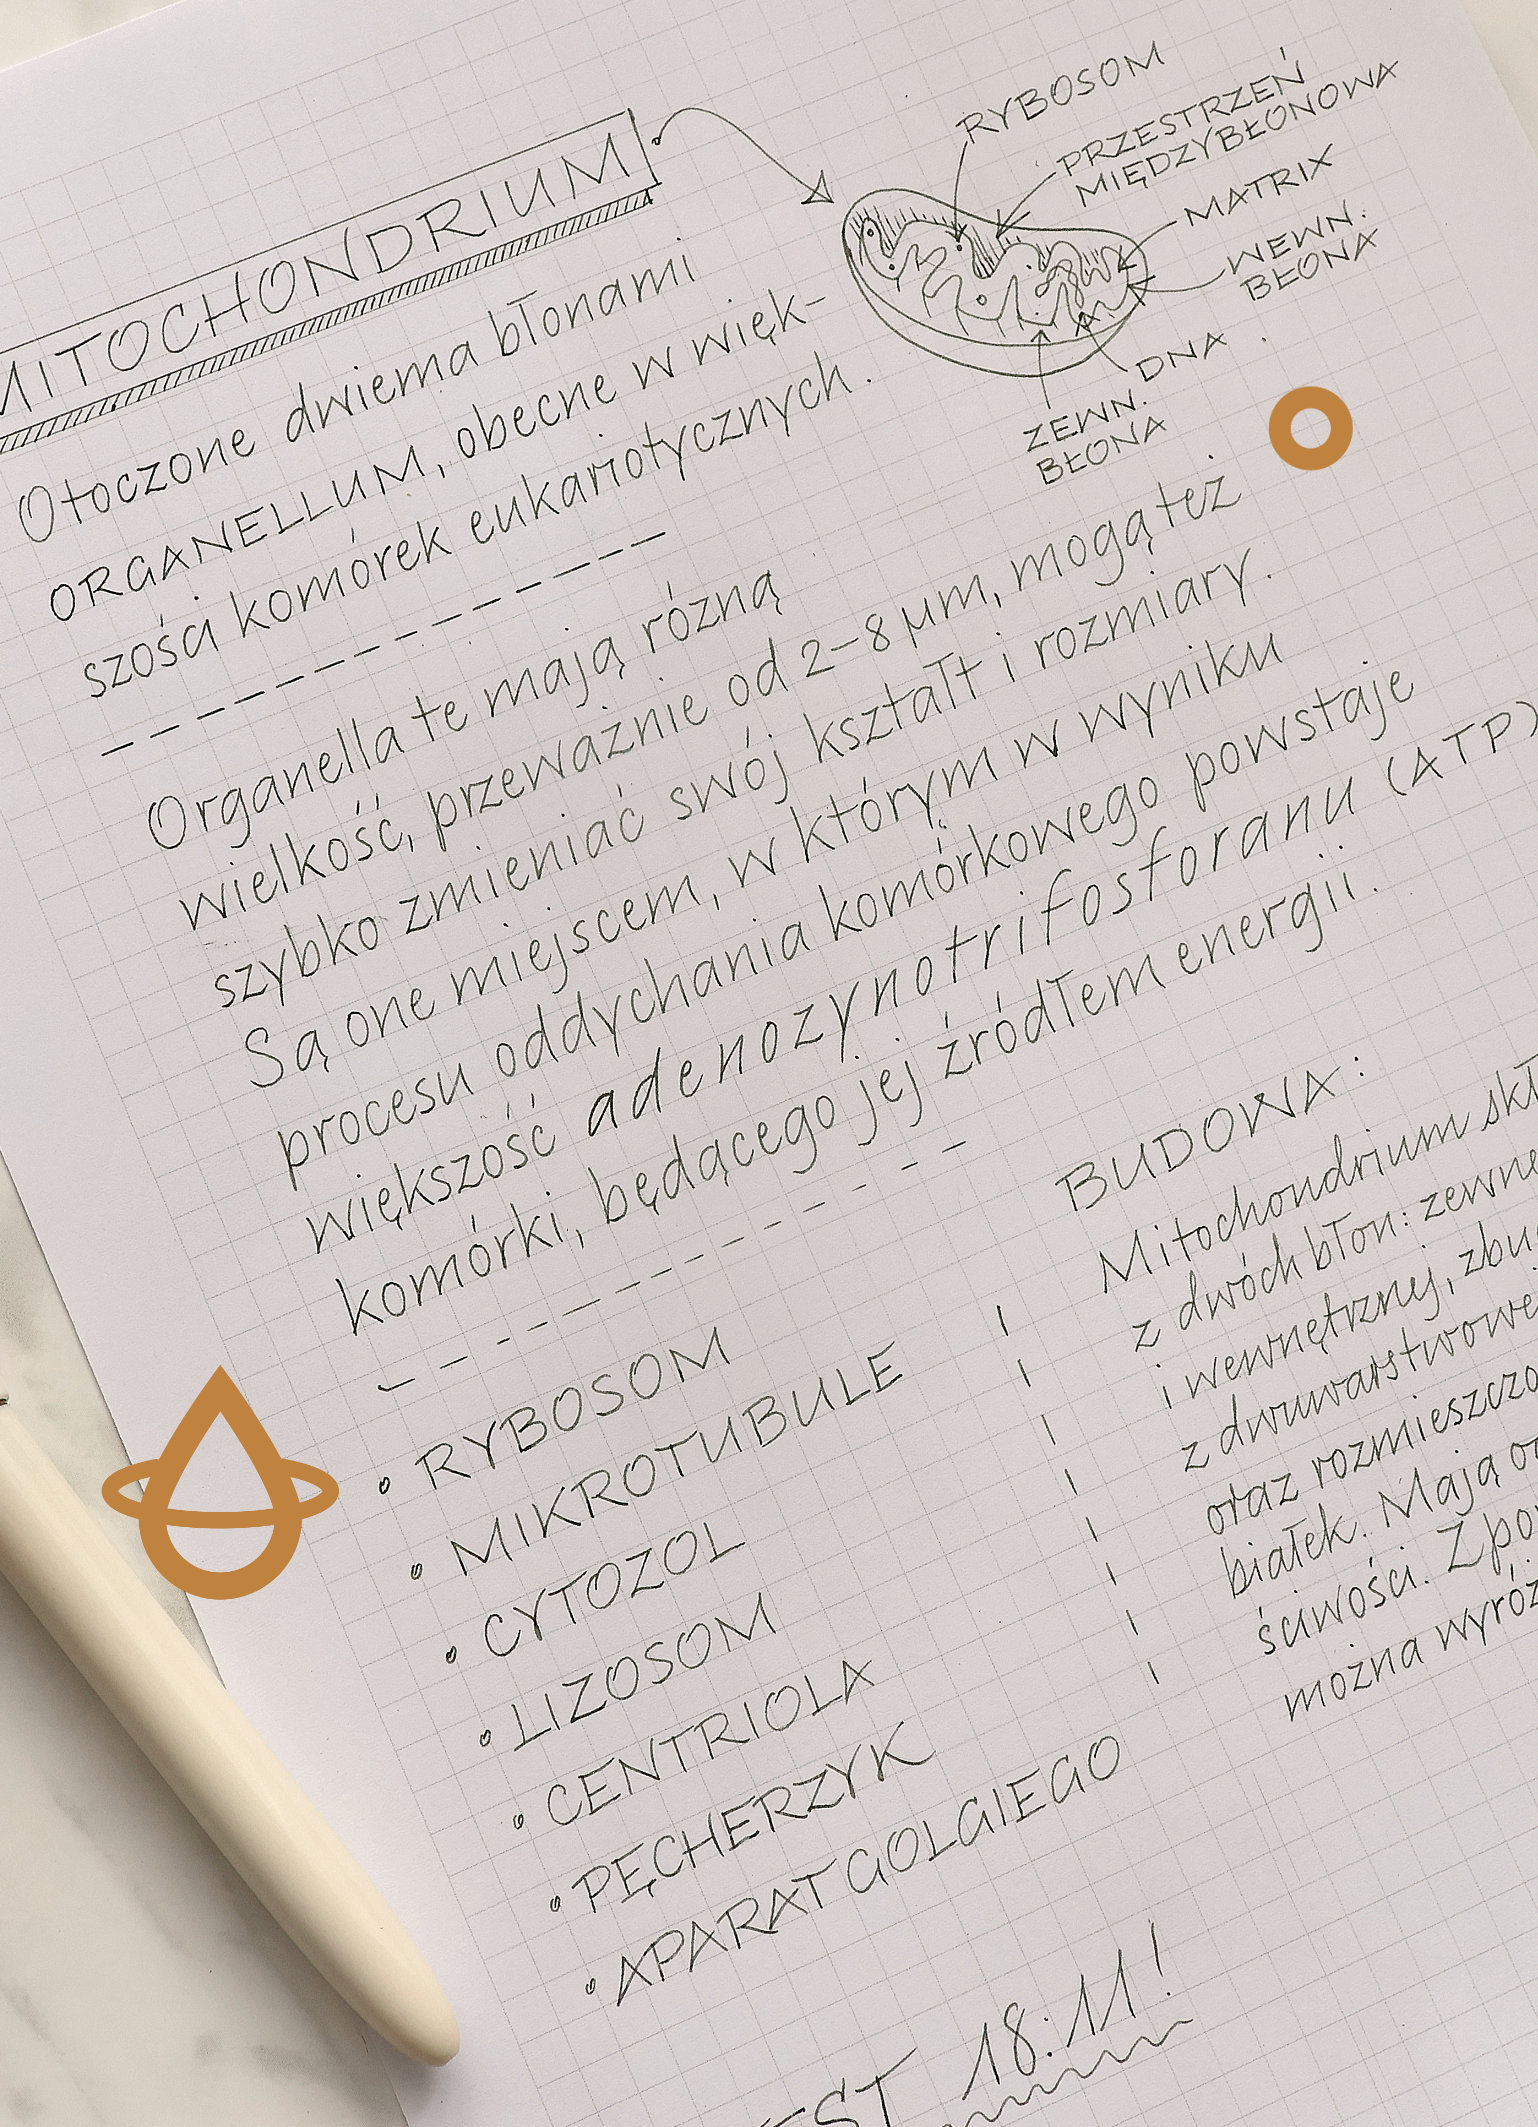 MITOCHONDRIUM
RYBOSOM
PRZESTRZEŃ
MIĘDZYBŁONOWA
MATRIX
WEWN.
BŁONA
DNA
ZEWN.
BŁONA
Otoczone dwiema błonami
ORGANELLUM, obecne w więk-
szości komórek eukariotycznych.
Organella te mają różną
wielkość, przeważnie od 2-8 µm, mogą też
szybko zmieniać swój kształt i rozmiary.
Są one miejscem, w którym w wyniku
procesu oddychania komórkowego powstaje
większość adenozynotrifosforanu (ATP)
komórki, będącego jej źródłem energii.
• RYBOSOM
• MIKROTUBULE
• CYTOZOL
• LIZOSOM
• CENTRIOLA
• PĘCHERZYK
• APARAT GOLGIEGO
BUDOWA:
Mitochondrium skł
z dwóch błon: zewnę
i wewnętrznej, zbu
z dwuwarstwowe
oraz rozmieszczo
białek. Mają
ściwości. Z po
można wyróż
EST 18.11!